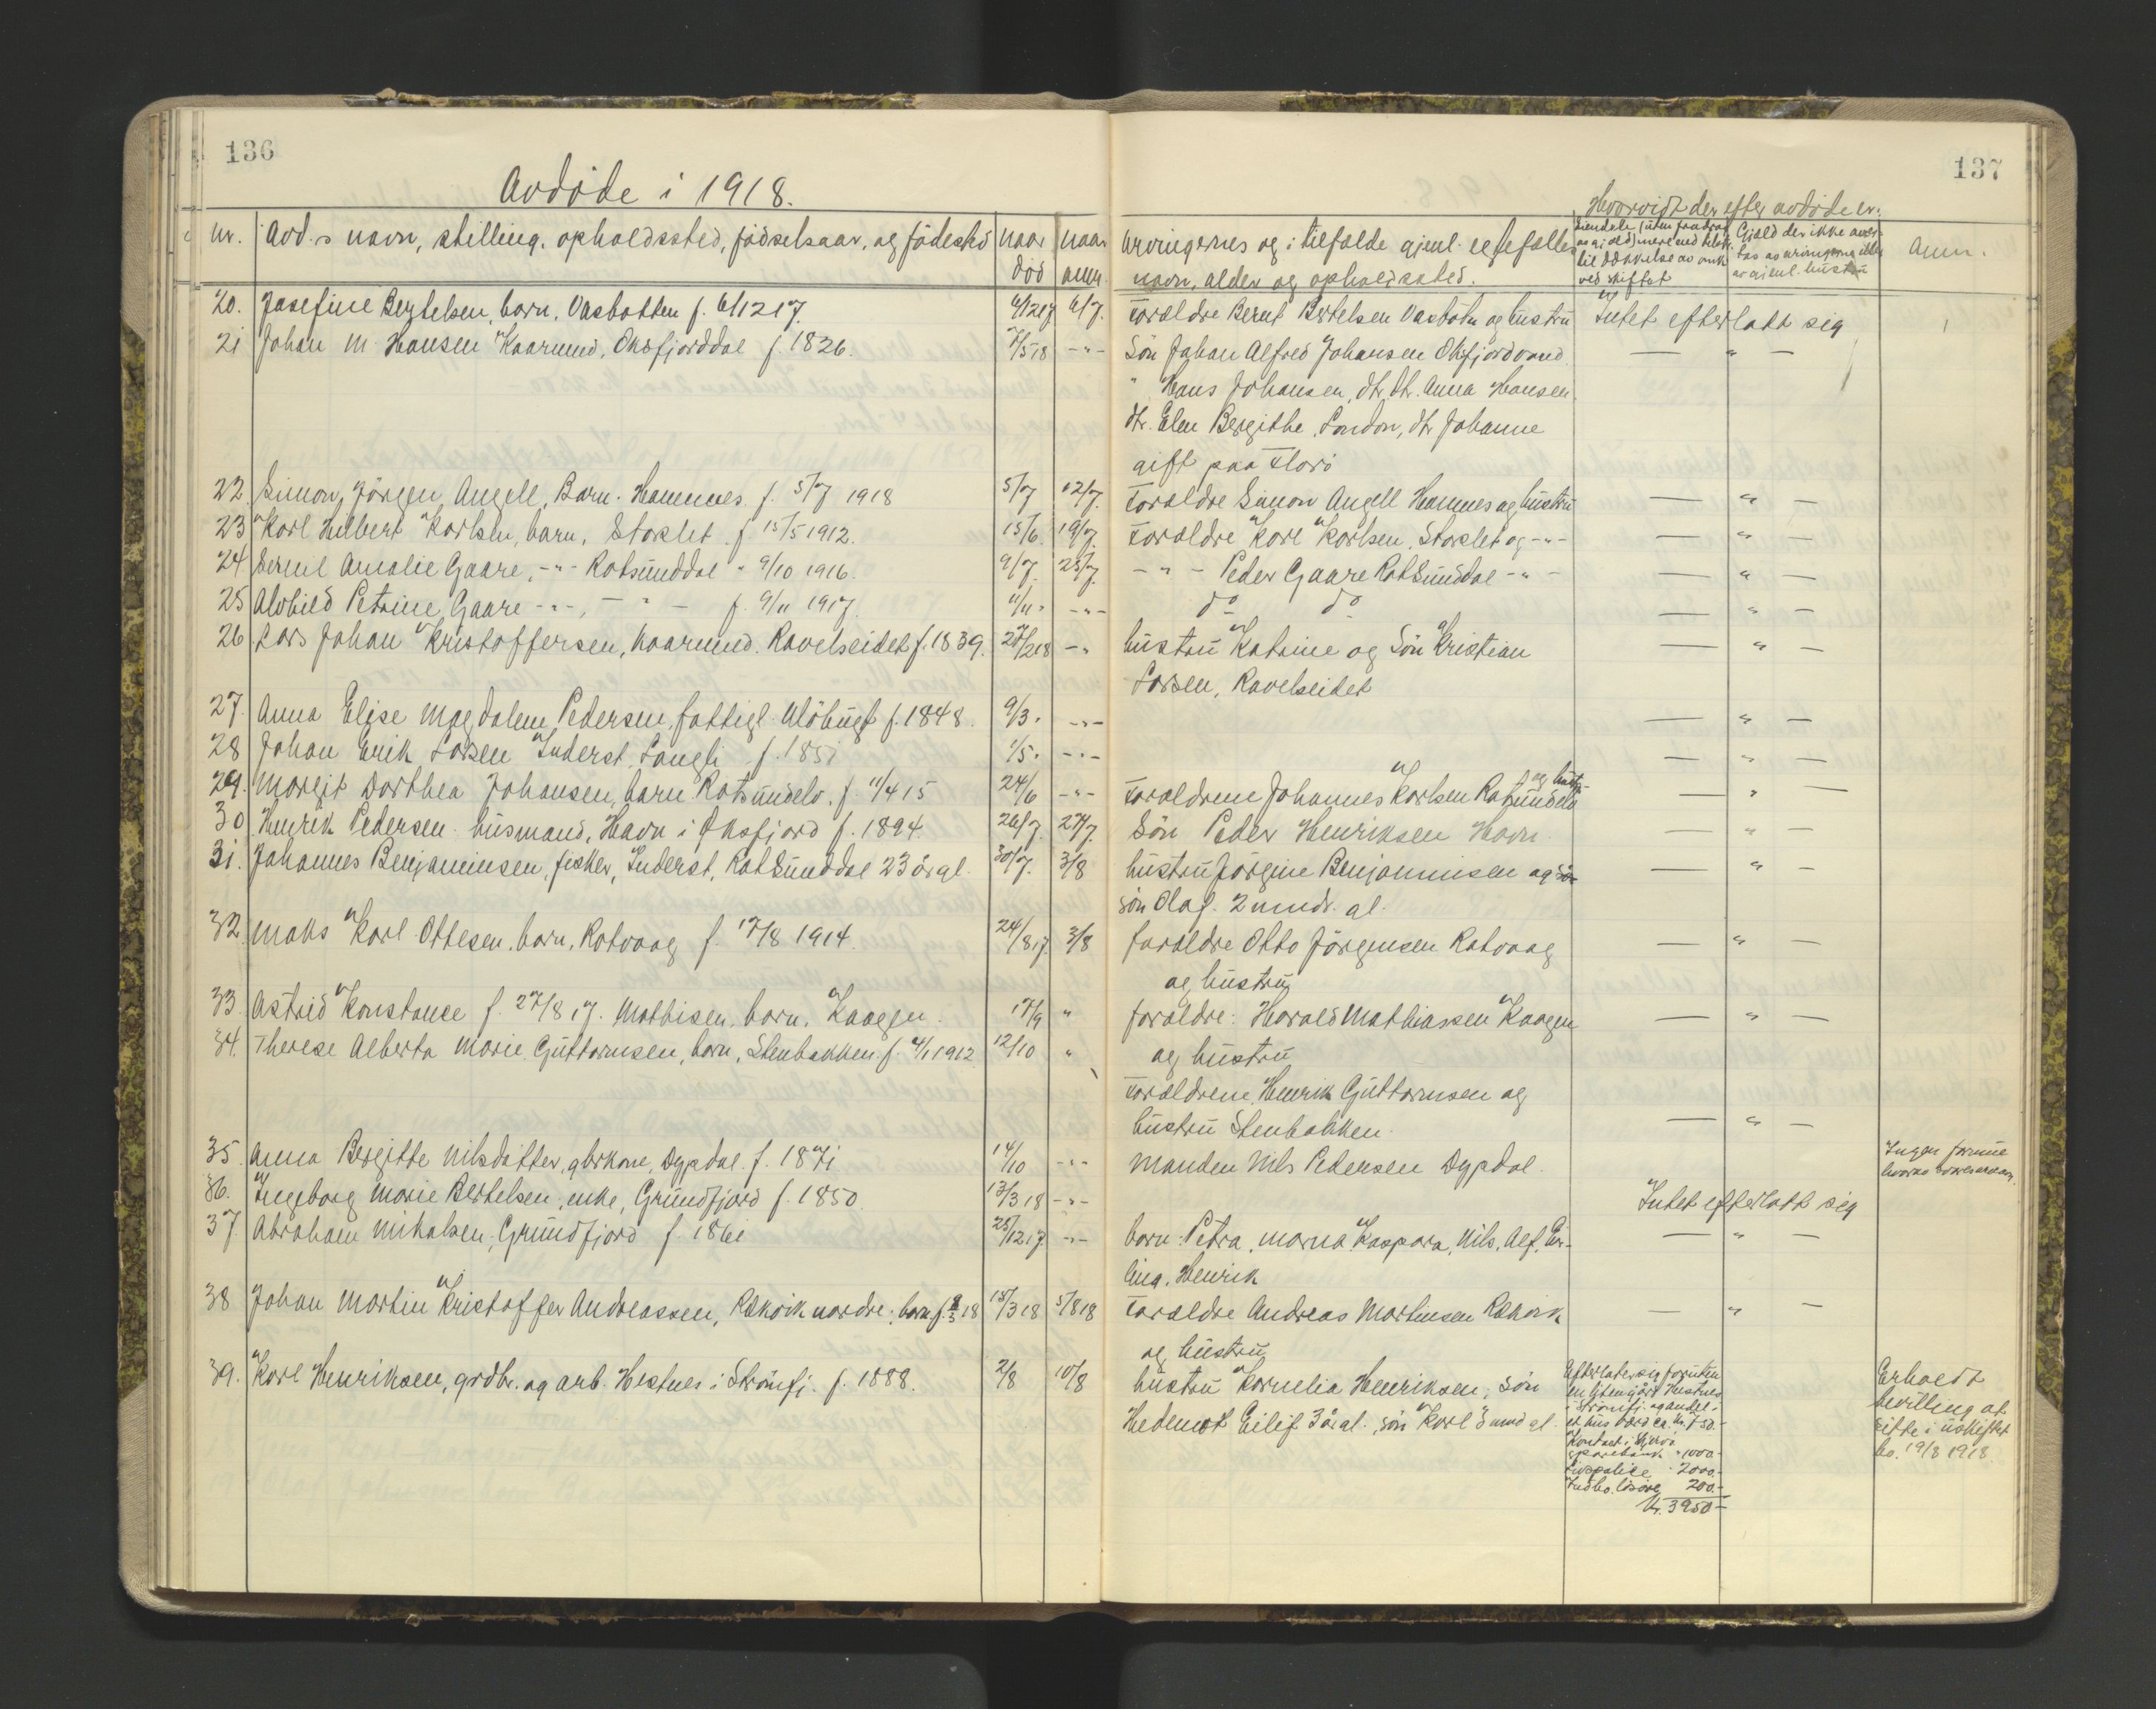 136
Avdøde i 1918.
nr. Avd.s navn, stilling, opholdssted, födselsaar, og födested naar död naar anm.
20. Josefine Bertelsen, barn, Vasbotten f. 6/12 17. 6/12 17 6/7.
21 Johan M. Hansen Kaarmand, Oksfjorddal f. 1826. 7/5 18 -"-
22 Simon Jörgen Angell, Barn. Hamnnes f. 5/7 1918 5/7 12/7.
23 Karl Hilbert Karlsen, barn, Storslet f 15/5 1912. 15/6. 19/7.
24 Amalie Gaare, -"- Rotsunddal " 9/10 1916. 9/7. 25/7.
25 Alvhild Petrine Gaare -"-, - " - f. 9/11 1917. 11/11 " -"-
26 Lars Johan Kristoffersen, kaarmand. Ravelseidet f. 1839. 27/2 18 -"
27. Anna Elise Magdalene Pedersen, fattigl. Alöbugt f. 1848. 9/3 " -"-
28 Johan Erik Larsen Inderst. Langli f. 1851 1/5 " -"-
29. Margit Dorthea Johansen, barn Rotsundelv. f. 11/4 15 24/6 -"-
30 Henrik Pedersen husmand, Havn i Oksfjord f. 1894. 26/7. 27/7.
31. Johannes Benjaminsen, fisker, Inderst, Rotsunddal 23 år gl. 30/7. 3/8
32 Maks Karl Ottesen, barn, Rotvaag f. 17/8 1914. 24/8 17. 3/8
33 Astrid Konstanse f. 27/8 17. Mathisen, barn, Kaagen. 17/9 "
34. Therese Alberta Marie Guttormsen, barn, Stenbakken f. 4/1 1912 12/10 "
35. Anna Bergitte Nilsdatter, gbrkone, Dypdal. f. 1871 14/10 -"-
36. Ingeborg Marie Bertelsen, enke, Grundfjord f. 1850. 13/3 18 -"-
37 Abraham Mikalsen, Grundfjord f. 1861 25/12 17. -"-
38 Johan Martin Kristoffer Andreassen, Rekvik nordre, barn f. 8/3 18 15/3 18 5/8 18
39. Karl Henriksen, grdbr. og arb. Hestnes i Strömfj. f. 1888. 2/8 10/8
137
Hvorvidt der efter avdöde er:
Arvingernes og i tilfælde gjenl. ektefælles navn, alder og opholdssted.
Eiendele (uten fradrag av gjæld) mere end til dækkelse av omk. ved skiftet
Gjæld der ikke overtas av arvingerne eller av gjenl. hustru
Anm.
Forældre Bernt Bertelsen Vasbotn og hustru Intet efterlatt sig
Sön Johan Alfred Johansen Oksfjordvand — " —
" Hans Johansen, dtr. dtr. Anna Hansen
dtr. Elen Bergithe, London, dtr Johanne
gift paa Florö
Forældre Simon Angell Hamnes og hustru — " —
Forældre Karl Karlsen, Storslet og -"- — " —
- " - Peder Gaare Rotsunddal -"- — " —
do do — " —
hustru Katrine og Sön Kristian — " —
Larsen, Ravelseidet
— " —
— " —
Forældrene Johannes Karlsen Rotsundelv og hustru — " —
Sön Peder Henriksen Havn. — " —
hustru Jörgine Benjaminsen og — " —
sön Olaf. 2 mndr. gl.
forældre Otto Jörgensen Rotvaag — " —
og hustru
forældre: Harald Mathiassen Kaagen — " —
og hustru
Forældrene Henrik Guttormsen og
hustru Stenbakken. — " —
Manden Nils Pedersen Dypdal. Ingen formue
Intet efterlatt sig
barn: Petra, Marna Kaspara, Nils, Alf, Er- — " —
ling, Henrik
Forældre Andreas Martinsen Rekvik — " —
og hustru
hustru Kornelia Henriksen, sön
Hedemot Eilif 3 år gl., sön Karl 5 mnd gl.
Efterlater sig foruten
en liten gård Hestnes
i Strömfj. og andel i
et hus værd ca. kr. 750.-
Kontant i
sparebank " 1000.-
Livspolise " 2000.-
Indbo. lösöre 200.-
kr. 3950 -
Erholdt
bevilling at
sitte i uskiftet
bo. 19/8 1918.